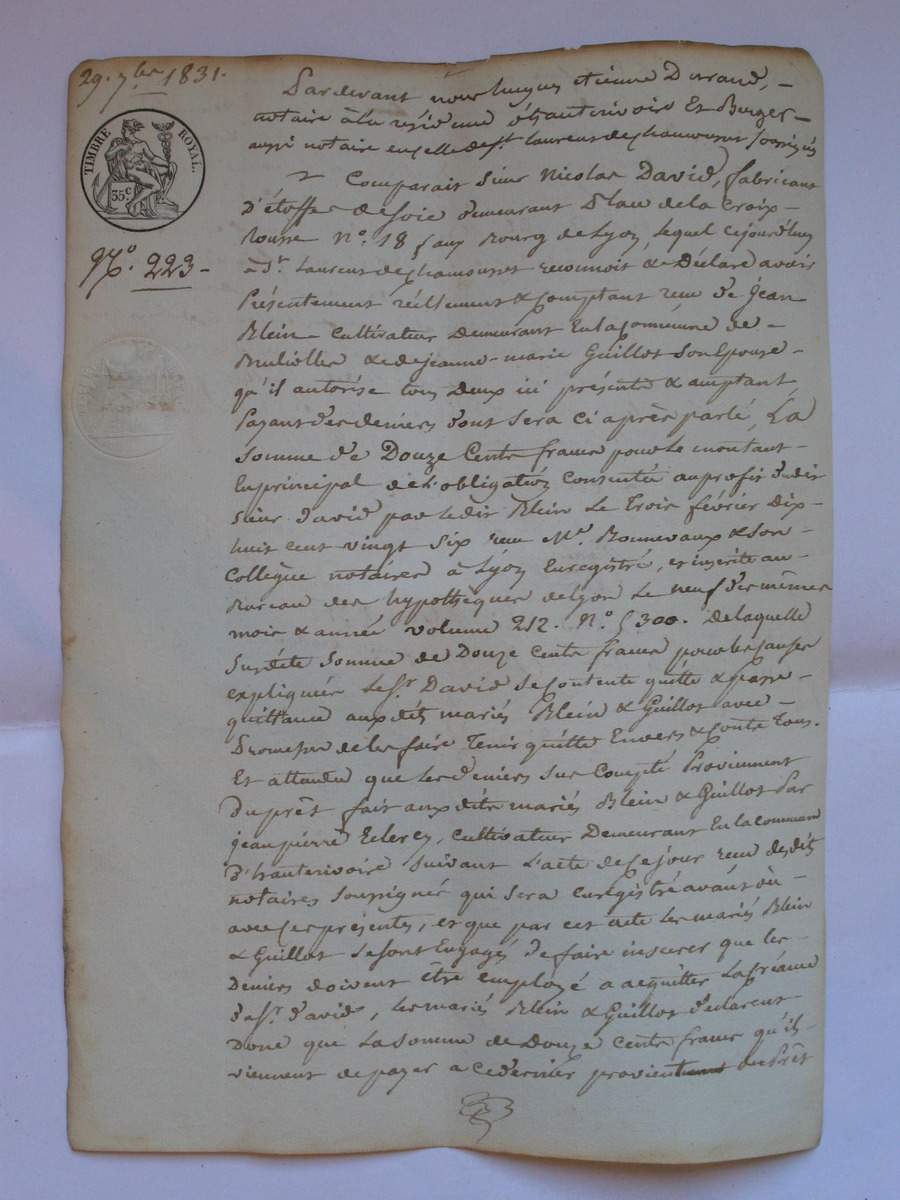 29. 7bre 1831.
TIMBRE ROYAL.
35 c
N.° 223 -
Pardevant nous hugues etienne Durand, -
notaire à la résidence d'hauterivoire Et Berger -
aussi notaire en celle de st. laurent de chamousset soussignés
Comparait Sieur Nicolas David, fabricant
D'étoffes de soie demeurant Place de la Croix-
Rousse N.° 18 faux Bourg de Lyon, lequel cejourd'huy
à St. laurent de chamousset reconnoit & Déclare avoir
Présentement réellement & comptant recu de jean
Blein - cultivateur Demeurant En la Commune de -
Brullolles & de jeanne-marie Guillot son Epouse -
qu'il autorise tous deux ici présents & acceptant
Payant des deniers dont sera ci après parlé, La
somme de Douze Cents francs pour le montant -
En principal de L'obligation Consentie au profit dudit
sieur David par ledit Blein Le Trois février dix-
huit cent vingt six recu Me. Bonnevaux & son -
Collègue notaires à Lyon Enregistré, et inscrite au -
Bureau des hypothèques de lyon Le neuf des mêmes
mois & année volume 212. N.° 5300. de laquelle
susdite somme de Douze Cents francs pour les causes
expliquées Le sr. David se contente quitte & passe -
quittance aux dits mariés Blein & Guillot avec -
Promesse de les faire Tenir quitte Envers & contre Tous.
Et attendu que les deniers sus Compté Proviennent
Du prêt fait aux dits mariés Blein & Guillot Par
jean pierre cultivateur Demeurant En la commune
D'hauterivoire suivant L'acte de ce jour recu desdits
notaires soussigné qui sera enregistré avant ou -
avec ces présentes, et que par cet acte Les mariés Blein
& Guillot se sont Engagés de faire insérer que les -
Deniers doivent être employé a acquitter La créance
de sr. David, Les mariés Blein & Guillot déclarent -
Donc que La somme de Douze Cents francs qu'ils -
viennent de payer a ce dernier provient du Prêt